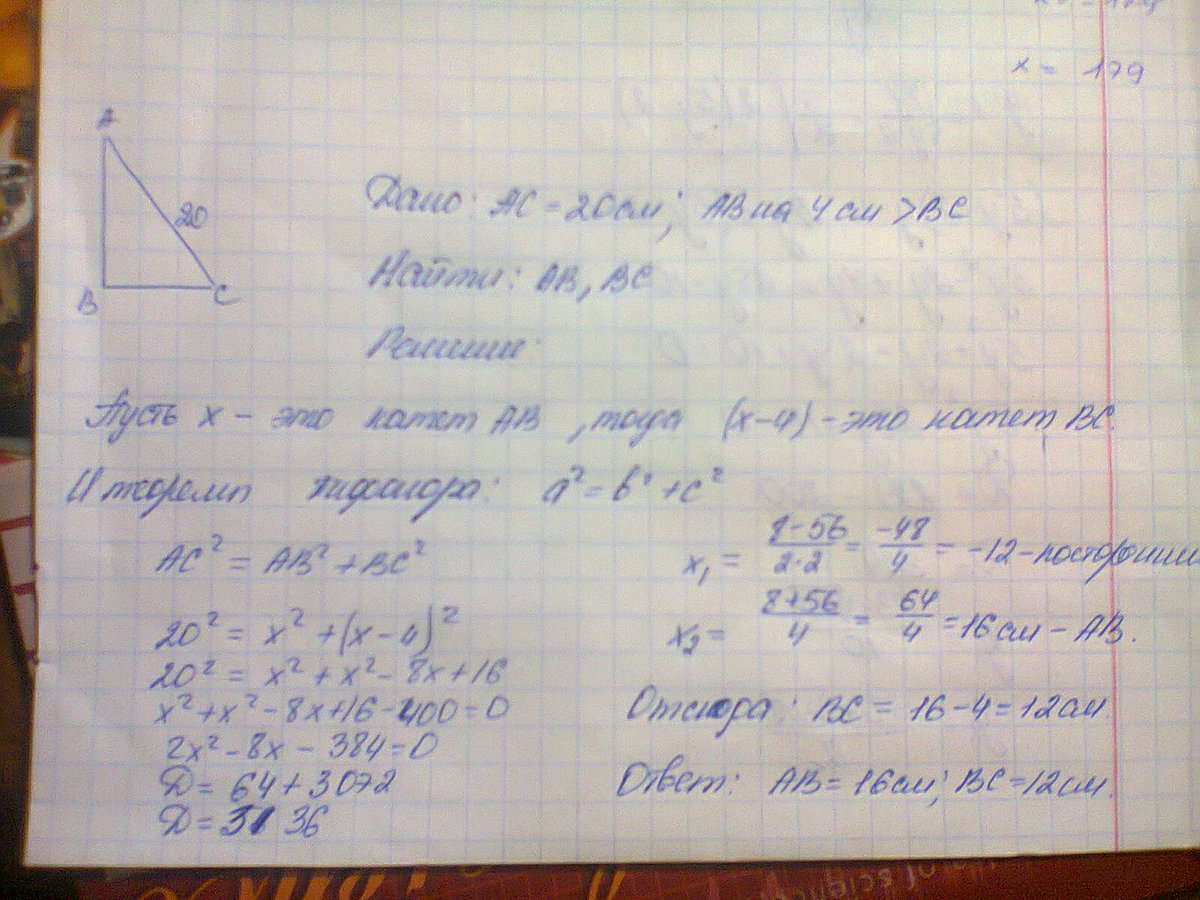 x = 179
A
20
B
C
Дано: AC = 20 см; AB на 4 см > BC
Найти: AB, BC
Решение:
Пусть x - это катет AB, тогда (x-4) - это катет BC.
теореме Пифагора: a² = b² + c²
AC² = AB² + BC²
20² = x² + (x-4)²
20² = x² + x² - 8x + 16
x² + x² - 8x + 16 - 400 = 0
2x² - 8x - 384 = 0
Д = 64 + 3072
Д = 3136
x₁ = 8-56/2·2 = -48/4 = -12 - посторонний
x₂ = 8+56/4 = 64/4 = 16 см - AB.
Отсюда: BC = 16 - 4 = 12 см.
Ответ: AB = 16 см; BC = 12 см.